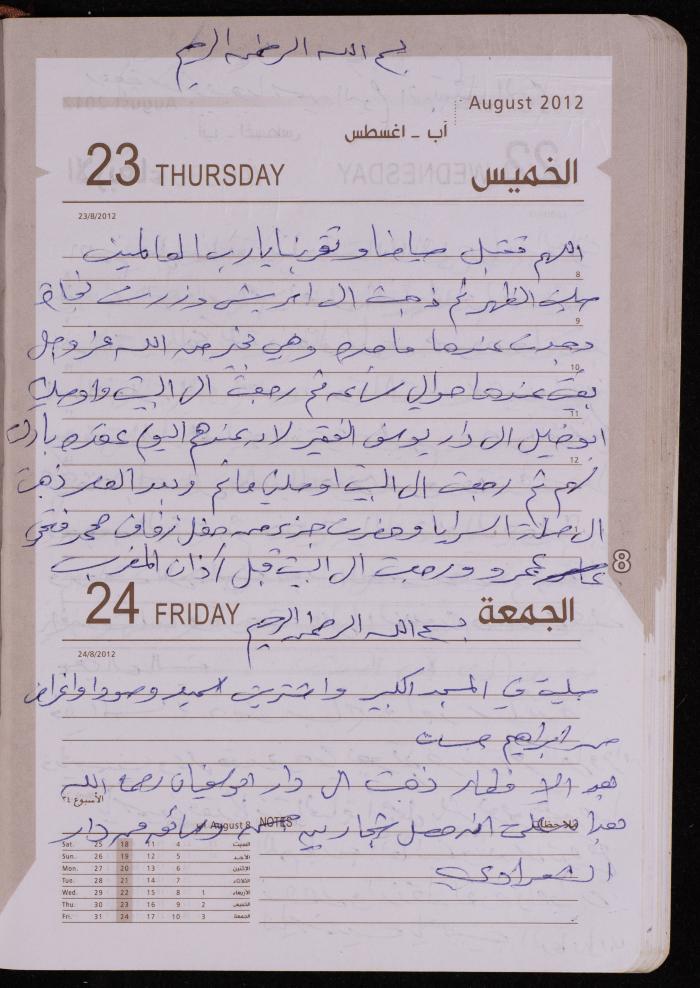 بسم الله الرحمن الرحيم
August 2012
آب – اغسطس
23 THURSDAY الخميس
23/8/2012
اللهم فتقبل صيامنا وتقربنا يارب العالمين
8
صليت الظهر ثم ذهبت الى ابو يشي وزرت نجاة
9
وجدت عندها ماجده وهي بخير من الله عز وجل
10
بقيت عندها حوالي ساعه ثم رجعت الى البيت واوصلت
11
ابو خليل الى دار يوسف الفقير لان عندهم اليوم عقده بارك
12
لهم ثم رجعت الى البيت اوصلني هاثم وبعد العصر ذهبت
الى صلاة السرايا وحضرت جزء من حفل زفاف محمد فتحي
عمرو ورجعت الى البيت قبل أذان المغرب
8
24 FRIDAY الجمعة
بسم الله الرحمن الرحيم
24/8/2012
صليت في المسجد الكبير واشتريت سميد وصودا واغراض
من ابراهيم
بعد الافطار ذهبت الى دار ابو سفيان رحمه الله
الأسبوع ٣٤
August 8 NOTES ملاحظات
هذا على انه حصل شجار بين وصائو من دار
الشعراوي
Sat. 25 18 11 4 السبت
Sun. 26 19 12 5 الأحد
Mon. 27 20 13 6 الاثنين
Tue. 28 21 14 7 الثلاثاء
Wed. 29 22 15 8 1 الأربعاء
Thu. 30 23 16 9 2 الخميس
Fri. 31 24 17 10 3 الجمعة